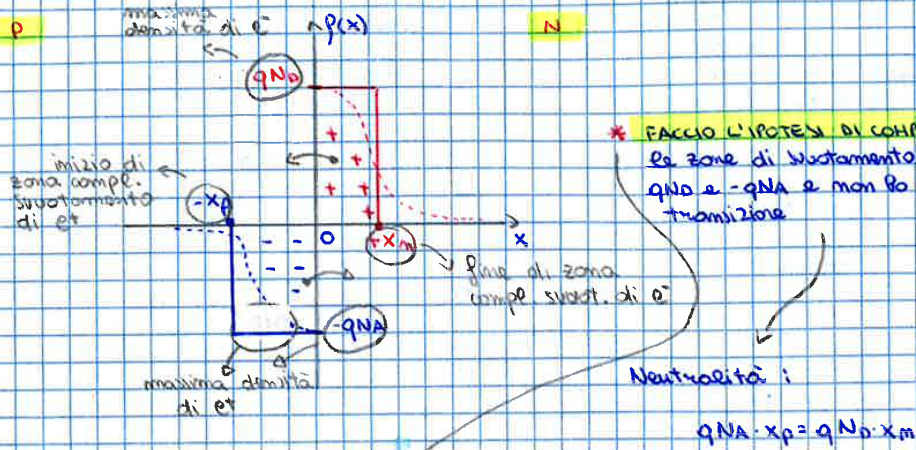 P
massima
densità di e⁻
ρ(x)
N
qND
inizio di
zona compl.
svuotamento
di e+
-xp
+ + + + +
- - - - -
0
+xm
x
fine di zona
compl. svuot. di e⁻
-qNA
massima densità
di e+
* FACCIO L'IPOTESI DI COMP
le zone di svuotamento
qND e -qNA e non ho
transizione
Neutralità :
qNA · xp = qND · xm